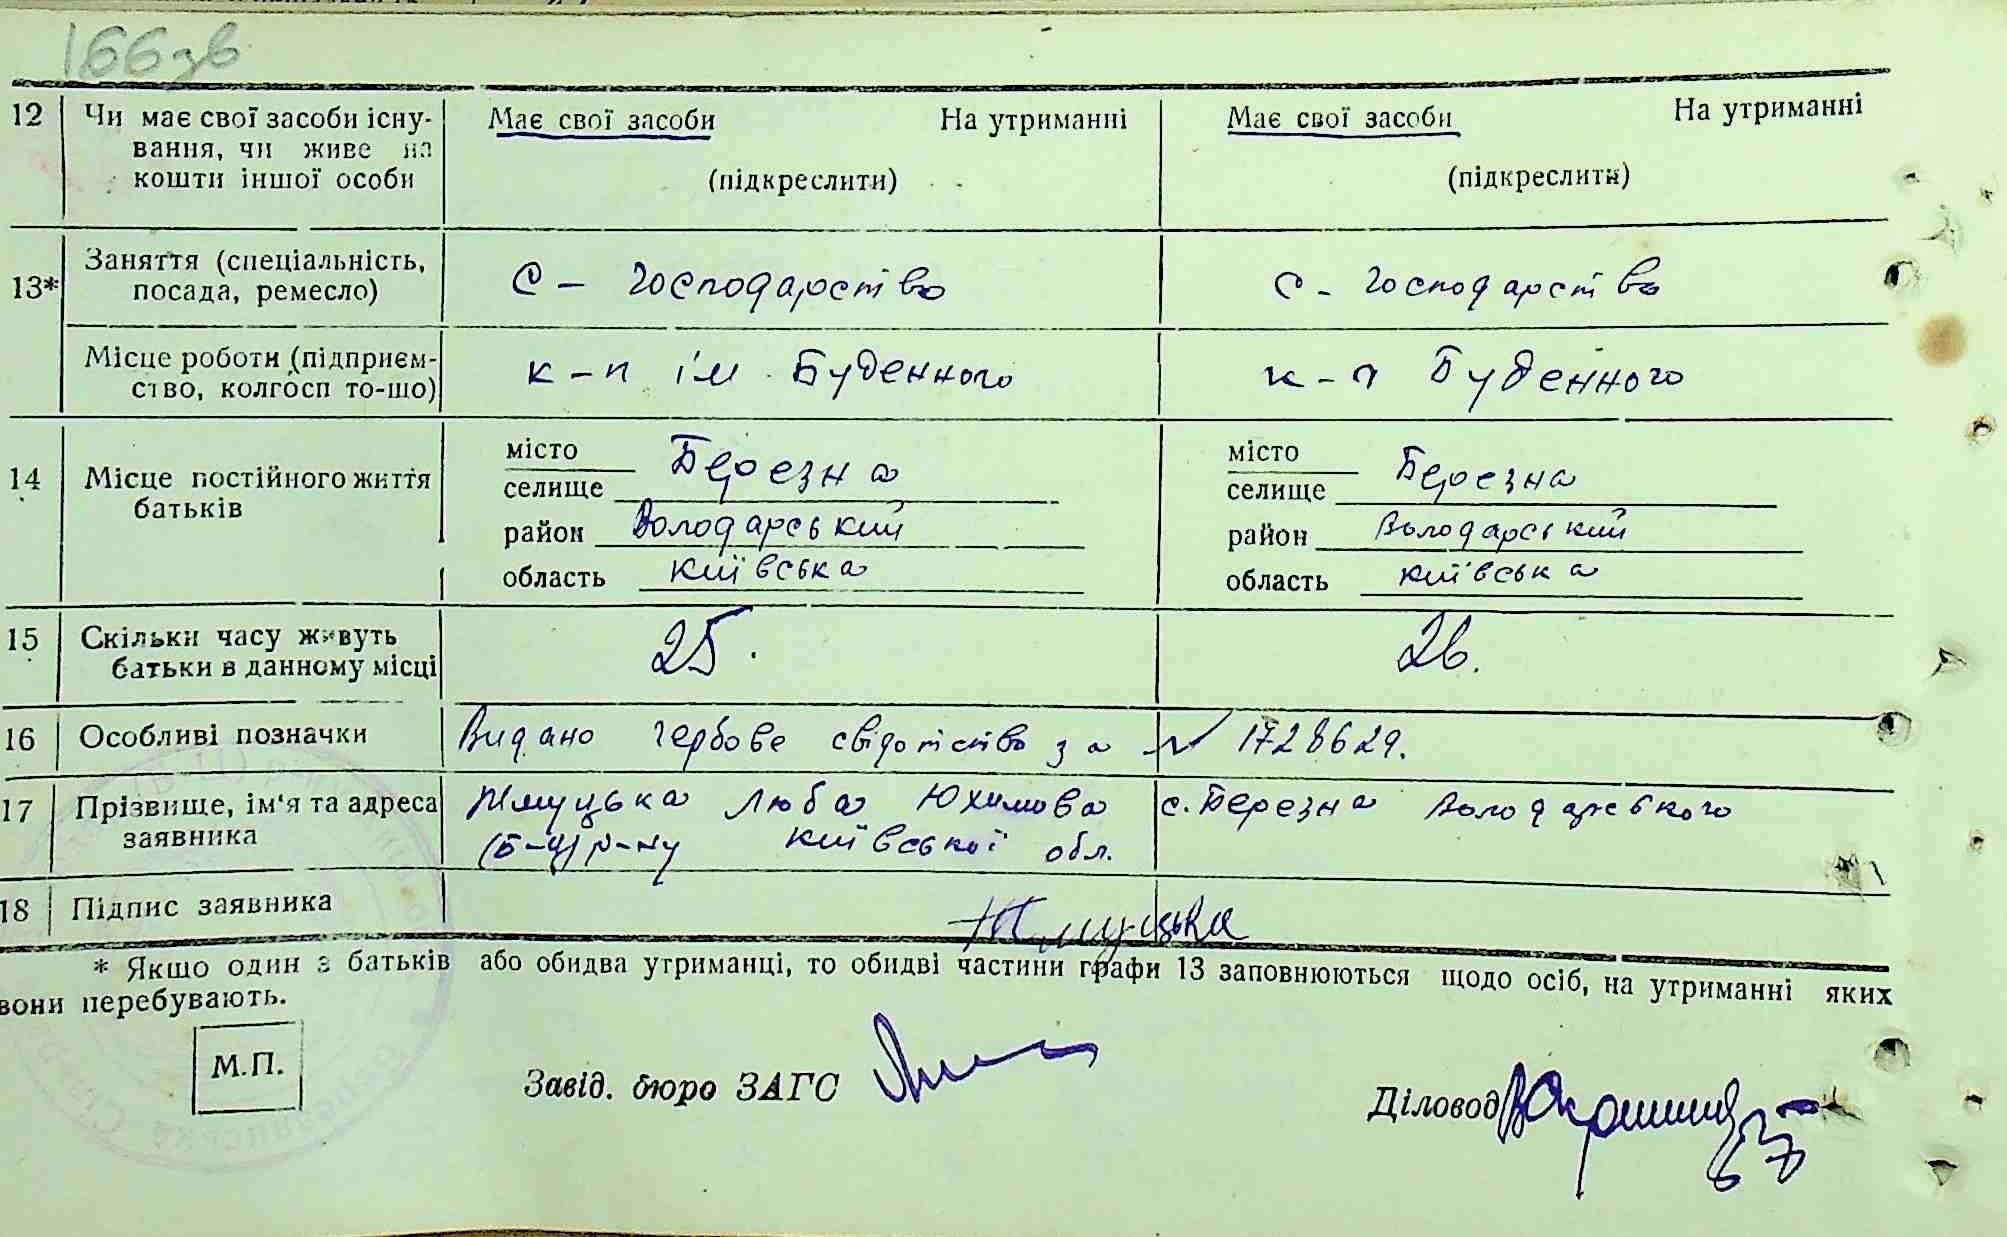 166зв
12 Чи має свої засоби існу- Має свої засоби На утриманні Має свої засоби На утриманні
вання, чи живе на
кошти іншої особи (підкреслити) (підкреслити)
13* Заняття (спеціальність, с - господарство с - господарство
посада, ремесло)
Місце роботи (підприєм- к-п ім. Буденного к-п Буденного
ство, колгосп то-що)
14 Місце постійного життя місто Березна місто Березна
батьків селище селище
район Володарський район Володарський
область київська область київська
15 Скільки часу живуть 25. 26.
батьки в данному місці
16 Особливі позначки Видано гербове свідотство за № 1728629.
17 Прізвище, ім'я та адреса Люба Юхимова с. Березна Володарського
заявника (Б-Ц) р-ну київської обл.
18 Підпис заявника
* Якщо один з батьків або обидва утриманці, то обидві частини графи 13 заповнюються щодо осіб, на утриманні яких
вони перебувають.
М.П. Завід. бюро ЗАГС
Діловод